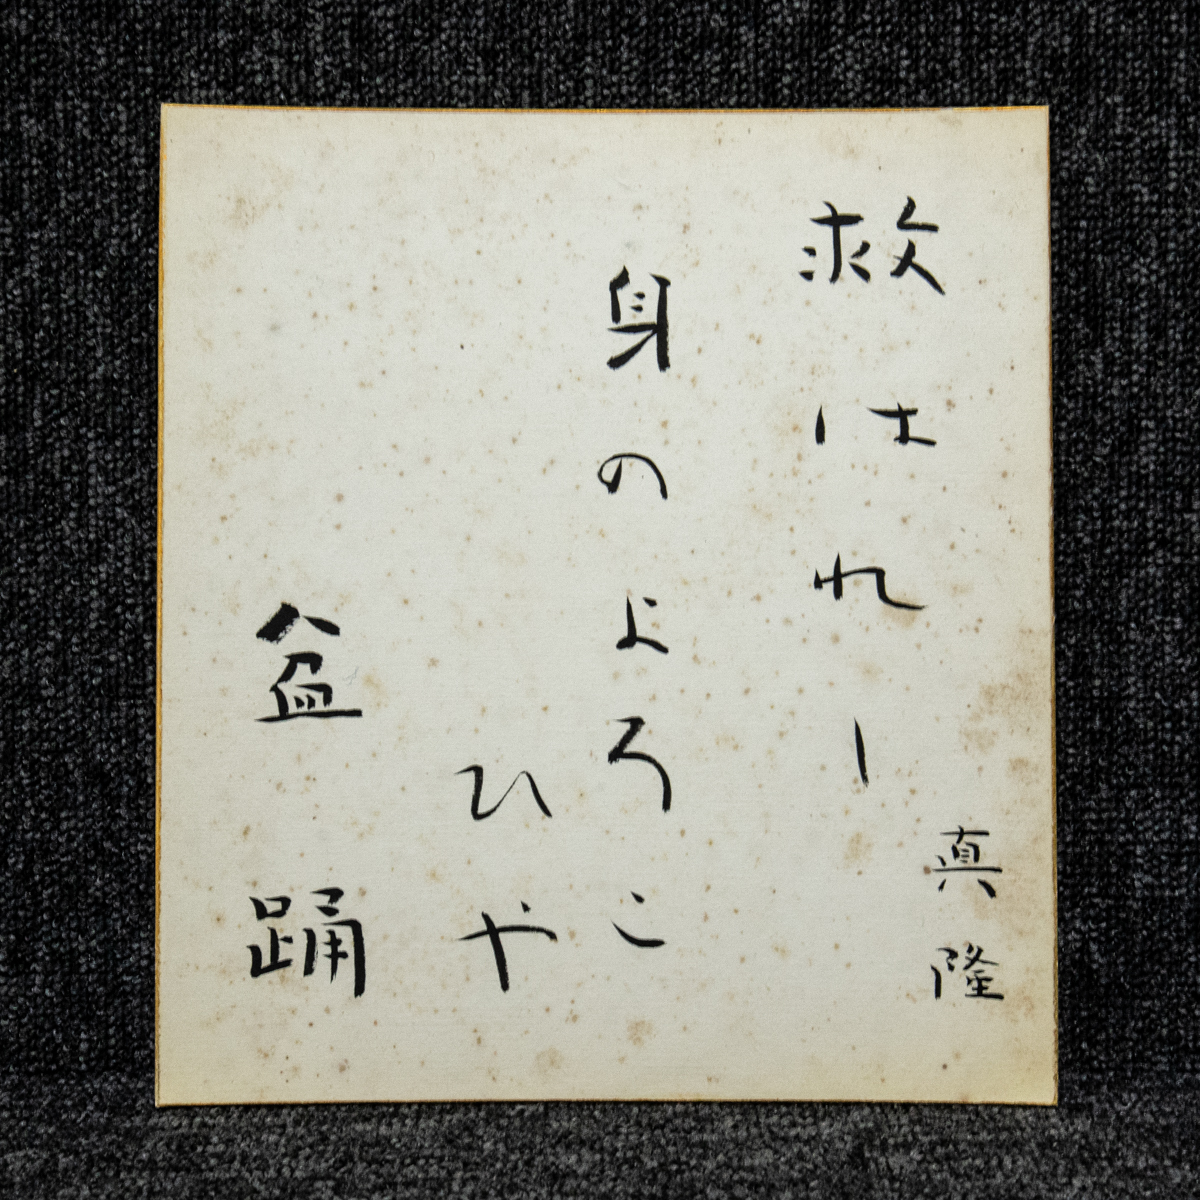 救はれし
身のよろこ
ひや
盆踊
真隆